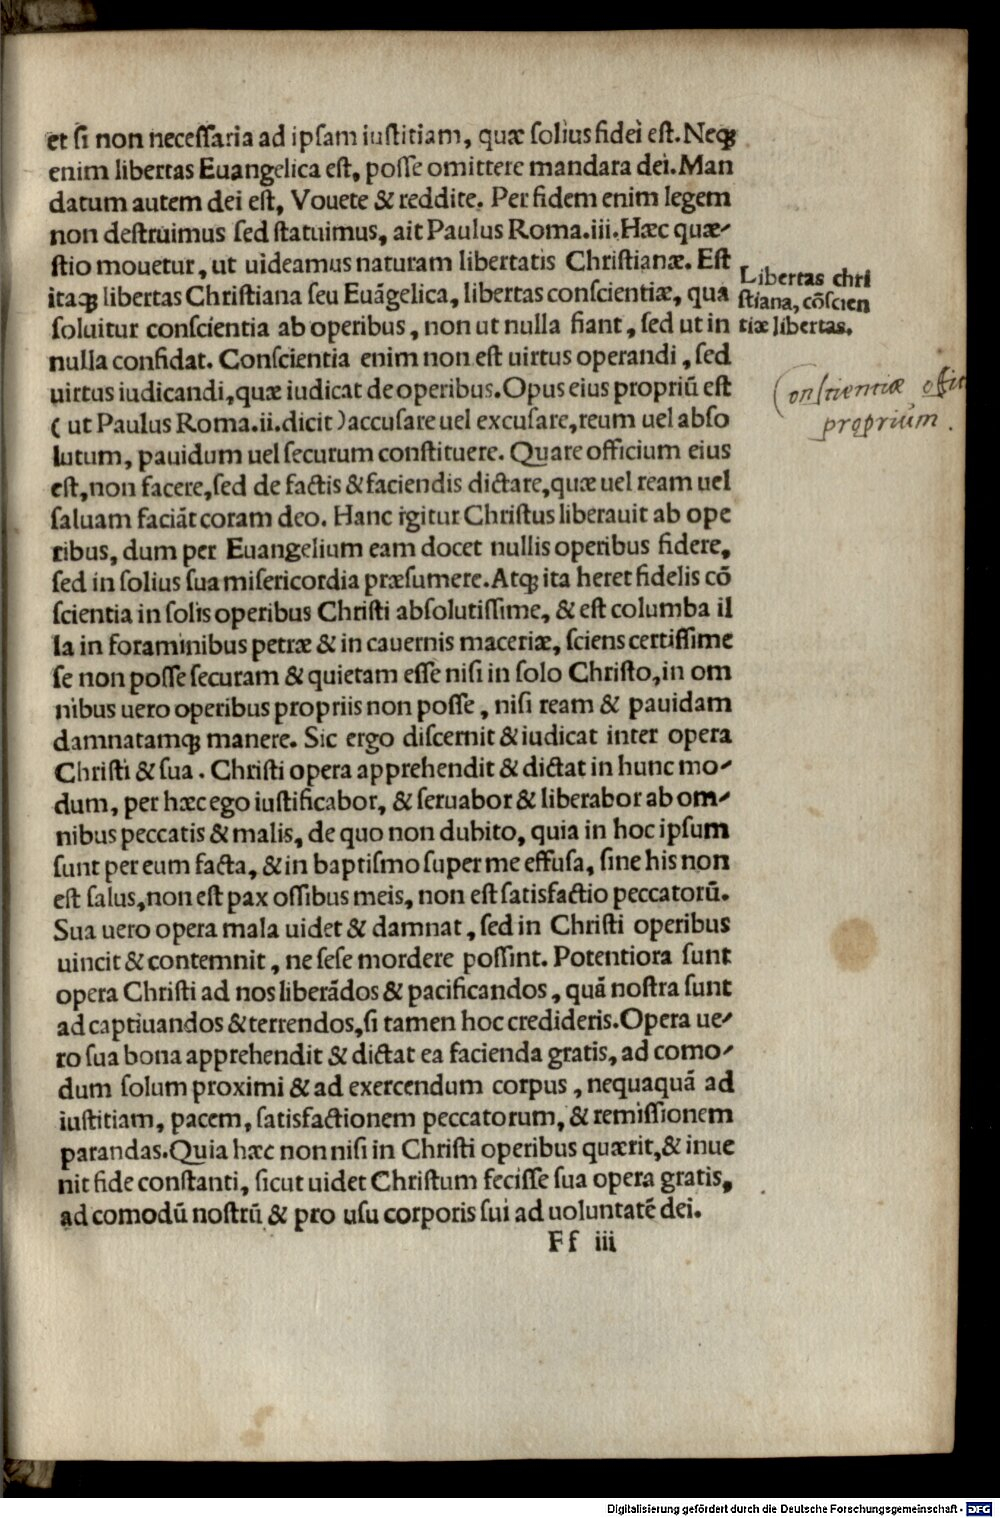 et si non necessaria ad ipsam iustitiam, quæ solius fidei est. Neqꝫ
enim libertas Euangelica est, posse omittere mandara dei. Man
datum autem dei est, Vouete & reddite. Per fidem enim legem
non destruimus sed statuimus, ait Paulus Roma.iii. Hæc quæ-
stio mouetur, ut uideamus naturam libertatis Christianæ. Est
itaqꝫ libertas Christiana seu Euãgelica, libertas conscientiæ, qua
soluitur conscientia ab operibus, non ut nulla fiant, sed ut in
nulla confidat. Conscientia enim non est uirtus operandi, sed
uirtus iudicandi, quæ iudicat de operibus. Opus eius propriũ est
( ut Paulus Roma.ii. dicit ) accusare uel excusare, reum uel abso
lutum, pauidum uel securum constituere. Quare officium eius
est, non facere, sed de factis & faciendis dictare, quæ uel ream uel
saluam faciãt coram deo. Hanc igitur Christus liberauit ab ope
ribus, dum per Euangelium eam docet nullis operibus fidere,
sed in solius sua misericordia præsumere. Atqꝫ ita heret fidelis cõ
scientia in solis operibus Christi absolutissime, & est columba il
la in foraminibus petræ & in cauernis maceriæ, sciens certissime
se non posse securam & quietam esse nisi in solo Christo, in om
nibus uero operibus propriis non posse, nisi ream & pauidam
damnatamqꝫ manere. Sic ergo discernit & iudicat inter opera
Christi & sua. Christi opera apprehendit & dictat in hunc mo-
dum, per hæc ego iustificabor, & seruabor & liberabor ab om-
nibus peccatis & malis, de quo non dubito, quia in hoc ipsum
sunt per eum facta, & in baptismo super me effusa, sine his non
est salus, non est pax ossibus meis, non est satisfactio peccatorũ.
Sua uero opera mala uidet & damnat, sed in Christi operibus
uincit & contemnit, ne sese mordere possint. Potentiora sunt
opera Christi ad nos liberãdos & pacificandos, quã nostra sunt
ad captiuandos & terrendos, si tamen hoc credideris. Opera ue-
ro sua bona apprehendit & dictat ea facienda gratis, ad como-
dum solum proximi & ad exercendum corpus, nequaquã ad
iustitiam, pacem, satisfactionem peccatorum, & remissionem
parandas. Quia hæc non nisi in Christi operibus quærit, & inue
nit fide constanti, sicut uidet Christum fecisse sua opera gratis,
ad comodũ nostrũ & pro usu corporis sui ad uoluntatẽ dei.
Ff iii
Libertas chri
stiana, cõscien
tiæ libertas.
Conscientiæ offic
proprium.
Digitalisierung gefördert durch die Deutsche Forschungsgemeinschaft - DFG